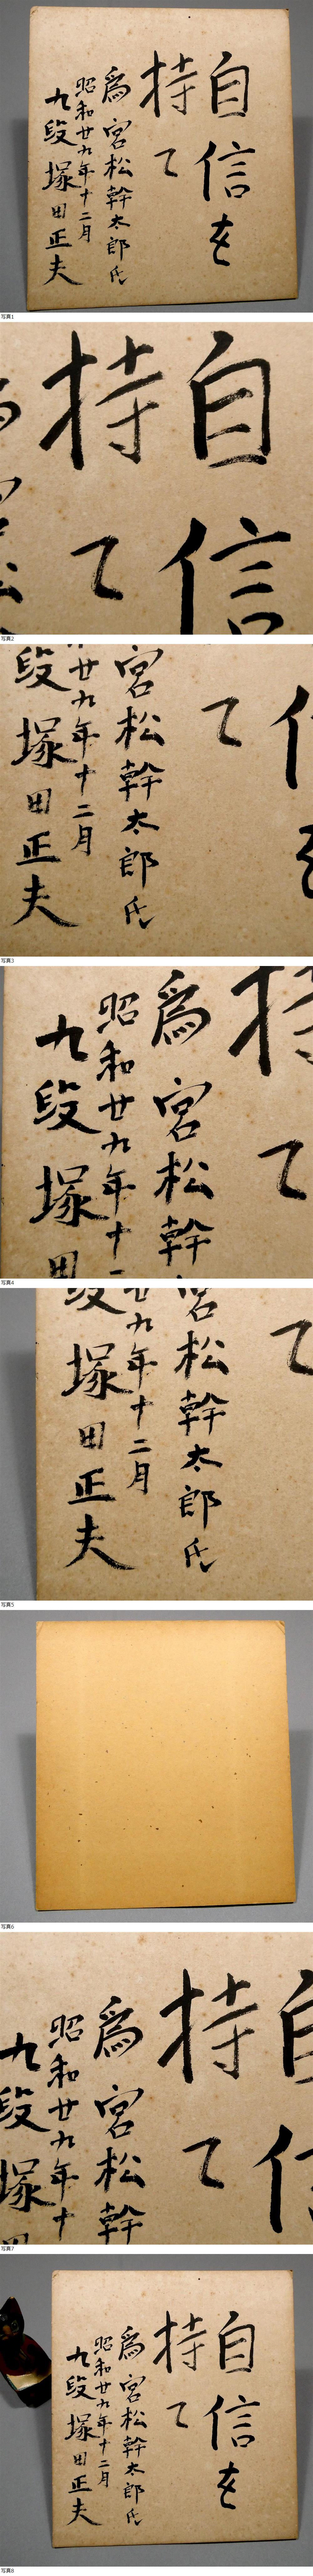 自信を
持て
爲 宮松幹太郎氏
昭和廿九年十二月
九段 塚田正夫
写真1
持 自
て 信
写真2
宮松幹太郎氏
廿九年十二月
段 塚田正夫
て
写真3
持
て
爲 宮松幹
昭和廿九年十
九段 塚田
写真4
て
宮松幹太郎氏
九年十二月
段 塚田正夫
写真5
写真6
自信
持て
爲 宮松幹
昭和廿九年十
九段 塚
写真7
自信を
持て
爲 宮松幹太郎氏
昭和廿九年十二月
九段 塚田正夫
写真8